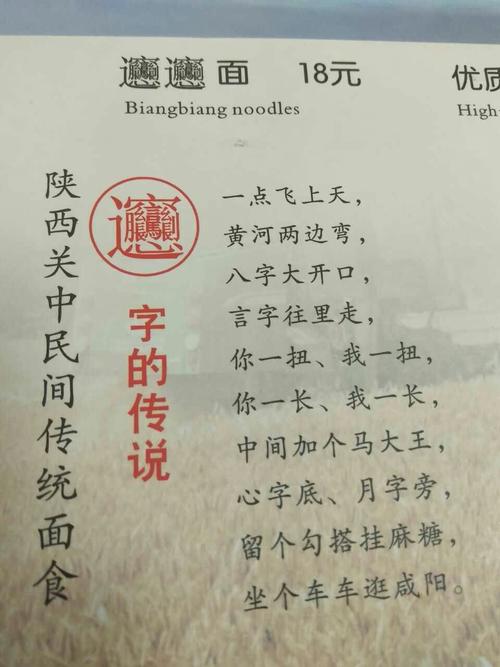 𰻞𰻞面 18元
优质
Biangbiang noodles
High-
陕西关中民间传统面食
𰻞
字的传说
一点飞上天，
黄河两边弯，
八字大开口，
言字往里走，
你一扭、我一扭，
你一长、我一长，
中间加个马大王，
心字底、月字旁，
留个勾搭挂麻糖，
坐个车车逛咸阳。